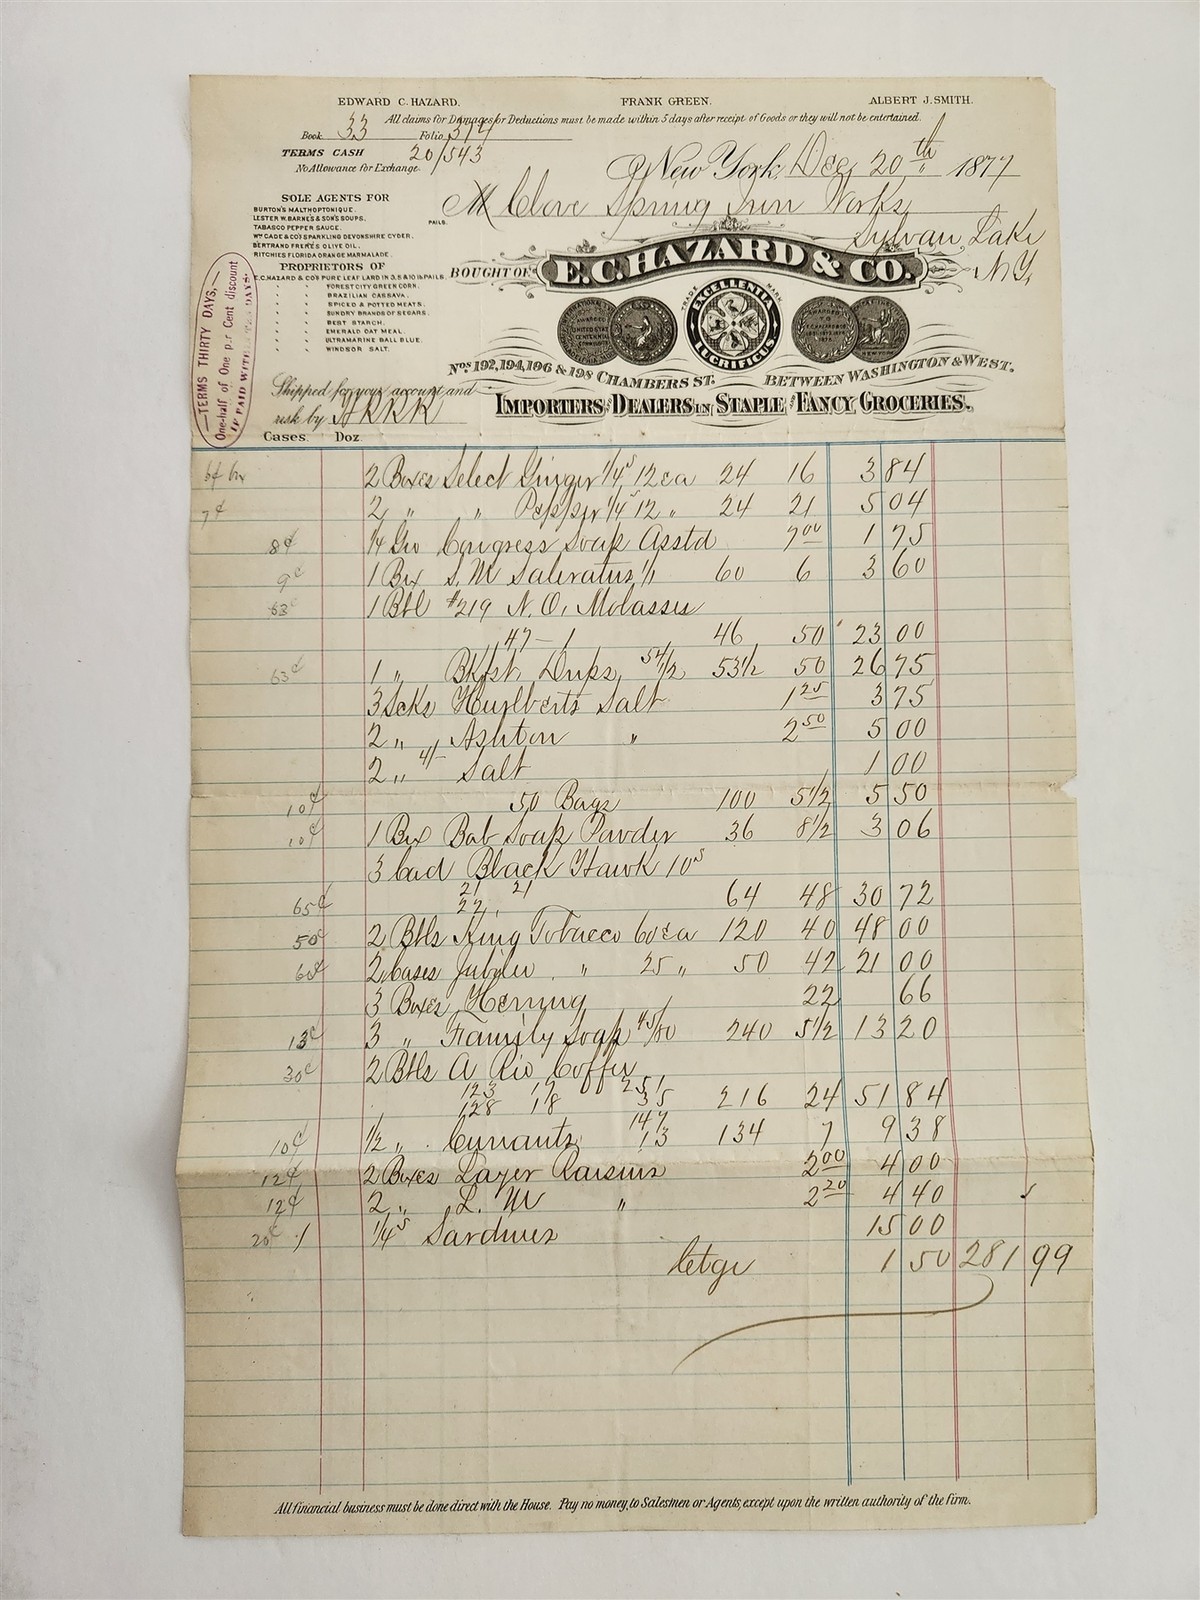 EDWARD C. HAZARD. FRANK GREEN. ALBERT J. SMITH.
All claims for Damages or Deductions must be made within 5 days after receipt of Goods or they will not be entertained.
Book 33 Folio 374
TERMS CASH 20/543
No Allowance for Exchange.
New York, Dec 20th 1877
M Clove Spring Iron Works
Sylvan Lake
N.Y.
SOLE AGENTS FOR
BURTON'S MALTHOPTONIQUE.
LESTER W. BARNE'S & SON'S SOUPS.
TABASCO PEPPER SAUCE.
WM GADE & CO'S SPARKLING DEVONSHIRE CYDER.
BERTRAND FRERE'S OLIVE OIL.
RITCHIES FLORIDA ORANGE MARMALADE.
PAILS.
PROPRIETORS OF
E.C. HAZARD & CO'S PURE LEAF LARD IN 3,5 & 10 LB PAILS.
" " " FOREST CITY GREEN CORN.
" " " BRAZILIAN CASSAVA.
" " " SPICED & POTTED MEATS.
" " " SUNDRY BRANDS OF SEGARS.
" " " BEST STARCH.
" " " EMERALD OAT MEAL.
" " " ULTRAMARINE BALL BLUE.
" " " WINDSOR SALT.
BOUGHT OF E.C. HAZARD & CO.
TRADE MARK
EXCELLENTIA
LUCRIFICUS
Nos 192, 194, 196 & 198 CHAMBERS ST. BETWEEN WASHINGTON & WEST.
IMPORTERS AND DEALERS IN STAPLE AND FANCY GROCERIES.
TERMS THIRTY DAYS,
One-half of One per Cent discount
IF PAID WITHIN TEN DAYS.
Shipped for your account and
risk by HRRR
Cases. Doz.
2 Boxes Select Ginger 1/4s 12 ea 24 16 3 84
7¢ 2 " " Pepper 1/4s 12 " 24 21 5 04
8¢ 1/4 Gro Congress Soap Asstd 7 00 1 75
9¢ 1 Bx S. M Saleratus 1/1 60 6 3 60
63¢ 1 Bbl #219 N. O. Molasses
47 - 1 46 50 23 00
63¢ 1 " Bkfst Drips 54 1/2 53 1/2 50 26 75
3 Scks Hurlberts Salt 1 25 3 75
2 " Ashton " 2 50 5 00
2 " 4/- Salt 1 00
10¢ 50 Bags 100 5 1/2 5 50
10¢ 1 Bx Bab Soap Powder 36 8 1/2 3 06
3 Cad Black Hawk 10s
21 21
65¢ 22 64 48 30 72
50¢ 2 Bbls King Tobacco 60 ea 120 40 48 00
60¢ 2 Cases Jubilee " 25 " 50 42 21 00
3 Boxes Herring 22 66
13¢ 3 " Family Soap 45/80 240 5 1/2 13 20
30¢ 2 Bbls A Rio Coffee
123 17 251
128 18 35 216 24 51 84
10¢ 1/2 " Currants 147 13 134 7 9 38
12¢ 2 Boxes Layer Raisins 2 00 4 00
12¢ 2 " L. M " 2 20 4 40
20¢ 1 1/4s Sardines 15 00
Ctge 1 50 281 99
All financial business must be done direct with the House. Pay no money, to Salesmen or Agents, except upon the written authority of the firm.